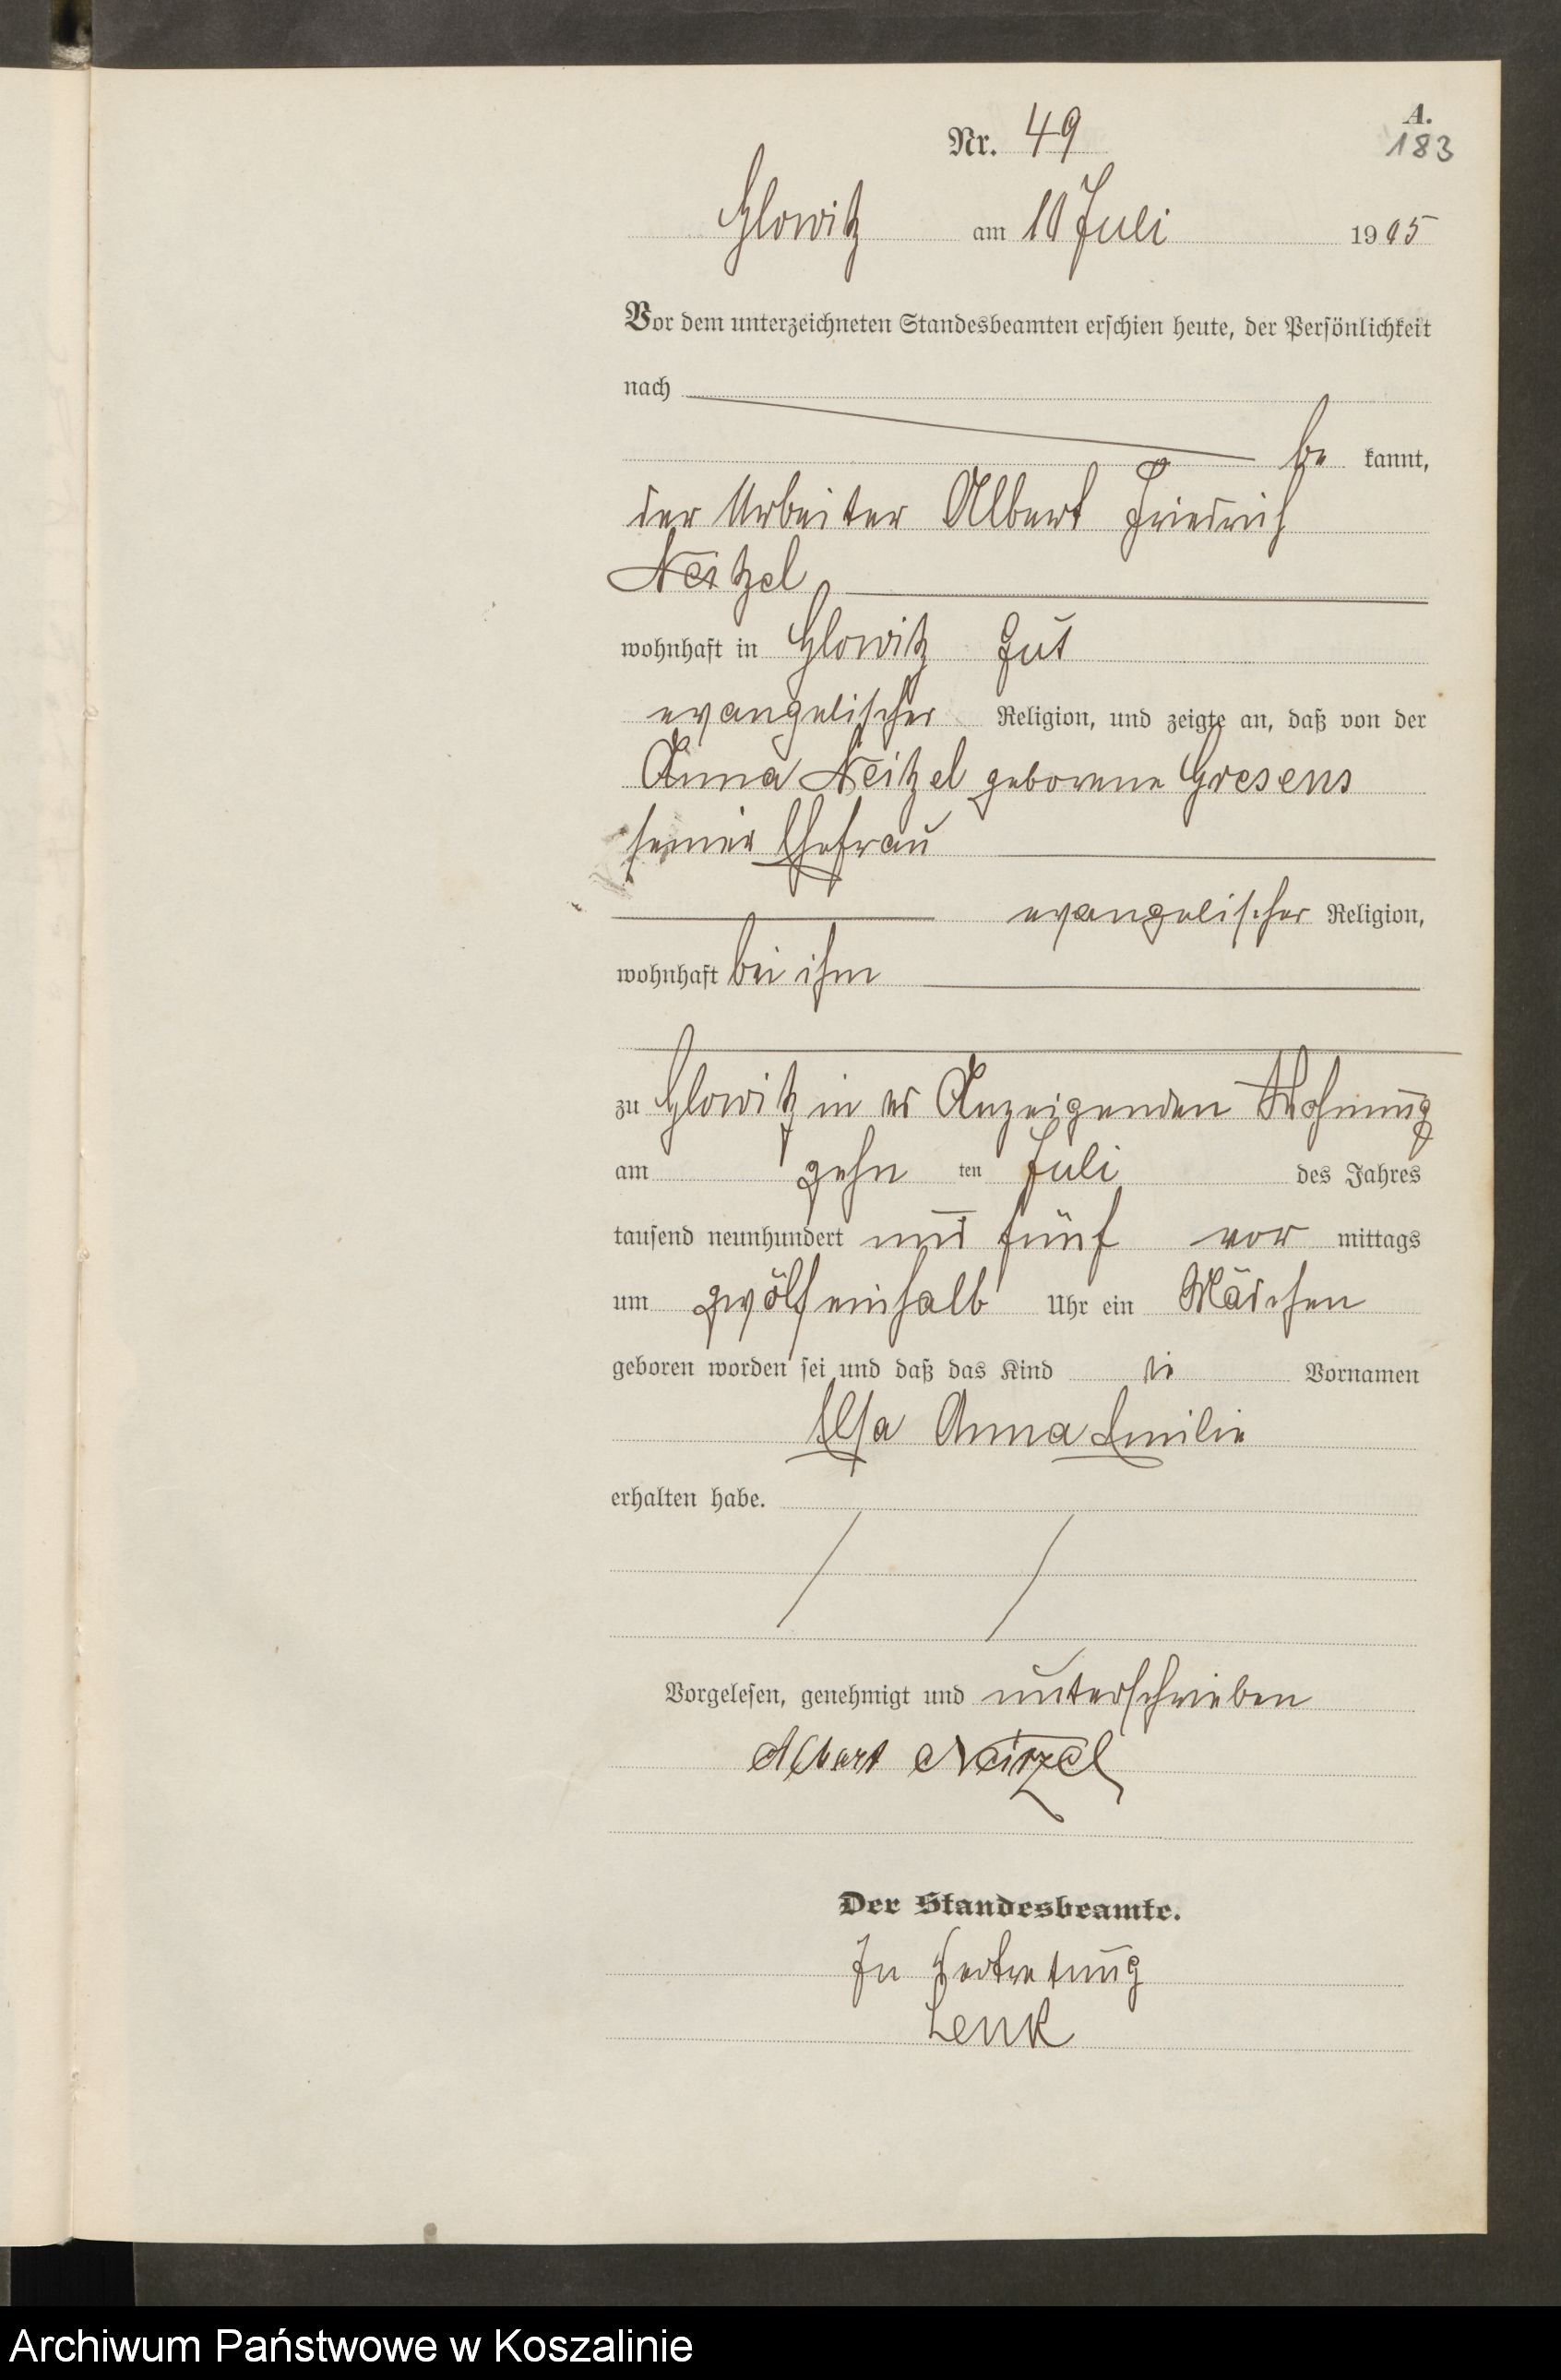 A.
Nr. 49
183
Glowitz am 10 Juli 1905
Vor dem unterzeichneten Standesbeamten erschien heute, der Persönlichkeit
nach
be kannt,
der Arbeiter Albert Friedrich
Neitzel
wohnhaft in Glowitz Gut
evangelischer Religion, und zeigte an, daß von der
Anna Neitzel geborene Gresens
seiner Ehefrau
evangelischer Religion,
wohnhaft bei ihm
zu Glowitz in des Anzeigenden Wohnung
am zehn ten Juli des Jahres
tausend neunhundert und fünf vor mittags
um zwölf einhalb Uhr ein Mädchen
geboren worden sei und daß das Kind die Vornamen
Elsa Anna Emilie
erhalten habe.
Vorgelesen, genehmigt und unterschrieben
Albert Neitzel
Der Standesbeamte.
In Vertretung
Lenk
Archiwum Państwowe w Koszalinie